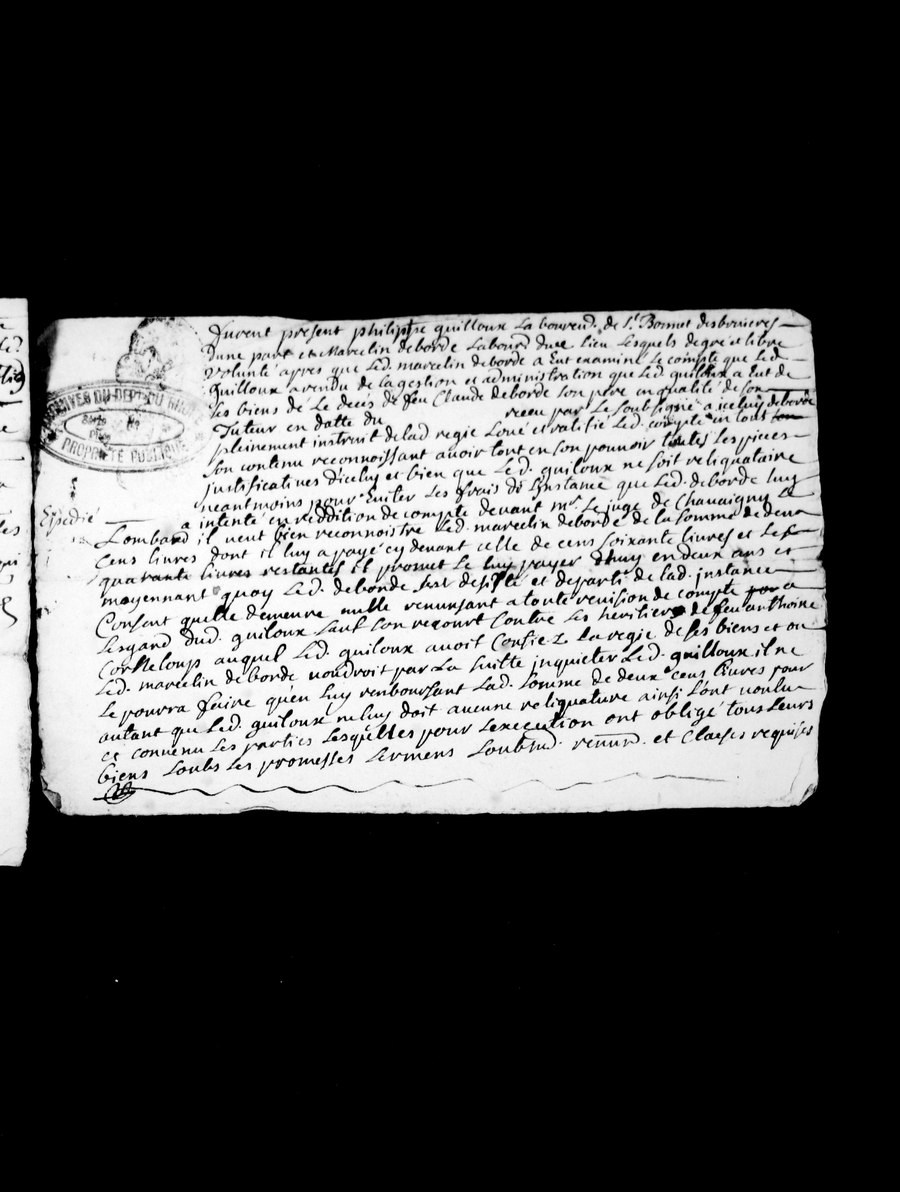 furent present philippe guilloux laboureur. de St. Bonnet desbruieres
dune part et Marcelin deborde Labourd dud. Lieu Lesquels de gré et libre
volunté apres que Led. marcelin deborde a Eut examiné Le compte que Led.
Guilloux a rendu de la gestion et administration que Led. guilloux a Eut de
ses biens dé Le decés de feu Claude deborde son pere en qualité de son
Tuteur en datte du receu par Le soubsigné a iceluy deborde
pleinement instruit de lad regie Loué et ratifié Led. compte en tout
son contenu reconnoissant avoir tout en son pouvoir toutes Les pieces
justificatives d'iceluy et bien que Led. guiloux ne soit reliquataire
neantmoins pour Eviter Les frais de L'instance que Led. deborde luy
Expedié
a intenté en reddition de compte devant mr. Le juge de Chavaigny Le
Lombard il veut bien reconnoistre Led. marcelin deborde de la somme de deux
Cens livres dont il luy a payé cy devant celle de cens soixante livres et Les
quarante livres restantes il promet Le luy payer dhuy en deux ans et
moyennant quoy Led. deborde sest desisté et departi de lad. instance
Consent quelle demeure nulle renunsant a toute revision de compte a
Lesgard dud. guiloux sauf son recourt Contre Les heritiers de feu anthoine
Corneloup auquel Led. guiloux avoit Confié La regie de ses biens et ou
Led. marcelin deborde voudroit par La suitte inquieter Led. guilloux il ne
Le pourra faire qu'en Luy remboursant Lad. somme de deux cens livres pour
autant que Led. guiloux ne luy doit aucune reliquature ainsi L'ont voulu
et convenu Les parties Lesquelles pour Lexecution ont obligé tous Leurs
biens soubs Les promesses sermens soubmd. renund. et Clauses requises
ARCHIVES DU DEPT. DU
PROPRIÉTÉ PUBLIQUE